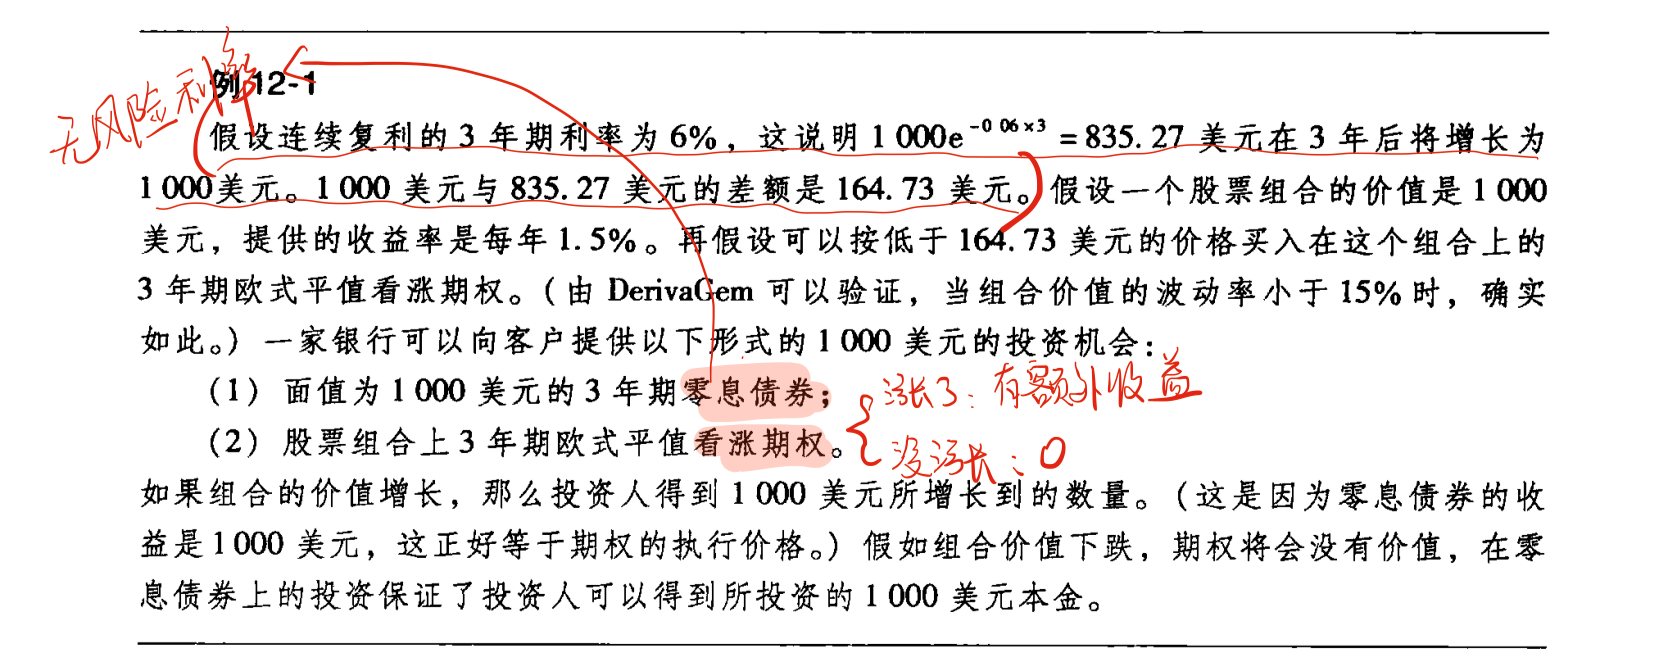 无风险利率
例 12-1
假设连续复利的 3 年期利率为 6%，这说明 1 000e^{-0 06×3} = 835. 27 美元在 3 年后将增长为
1 000美元。1 000 美元与 835. 27 美元的差额是 164. 73 美元。假设一个股票组合的价值是 1 000
美元，提供的收益率是每年 1. 5%。再假设可以按低于 164. 73 美元的价格买入在这个组合上的
3 年期欧式平值看涨期权。（由 DerivaGem 可以验证，当组合价值的波动率小于 15% 时，确实
如此。）一家银行可以向客户提供以下形式的 1 000 美元的投资机会：
（1） 面值为 1 000 美元的 3 年期零息债券；
涨了：有额外收益
（2） 股票组合上 3 年期欧式平值看涨期权。
没涨：0
如果组合的价值增长，那么投资人得到 1 000 美元所增长到的数量。（这是因为零息债券的收
益是 1 000 美元，这正好等于期权的执行价格。）假如组合价值下跌，期权将会没有价值，在零
息债券上的投资保证了投资人可以得到所投资的 1 000 美元本金。